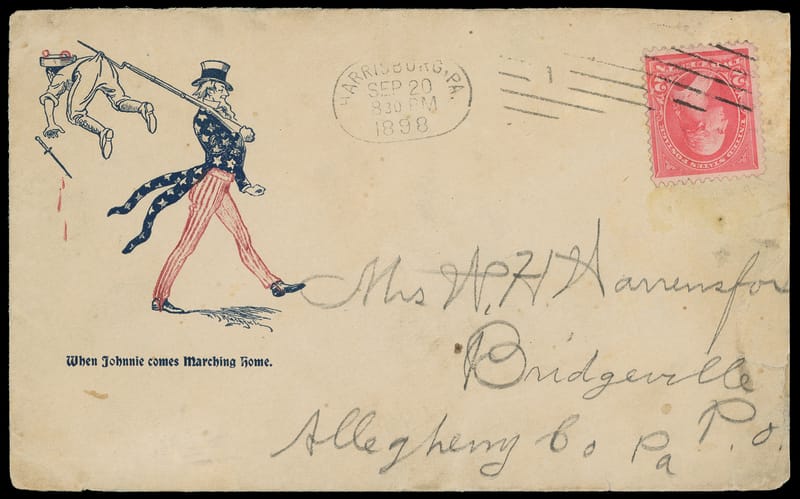 HARRISBURG, PA.
SEP 20
8 30 PM
1898
1
UNITED STATES POSTAGE
When Johnnie comes Marching Home.
Mrs W. H.
Bridgeville
P.O.
Allegheny Co Pa